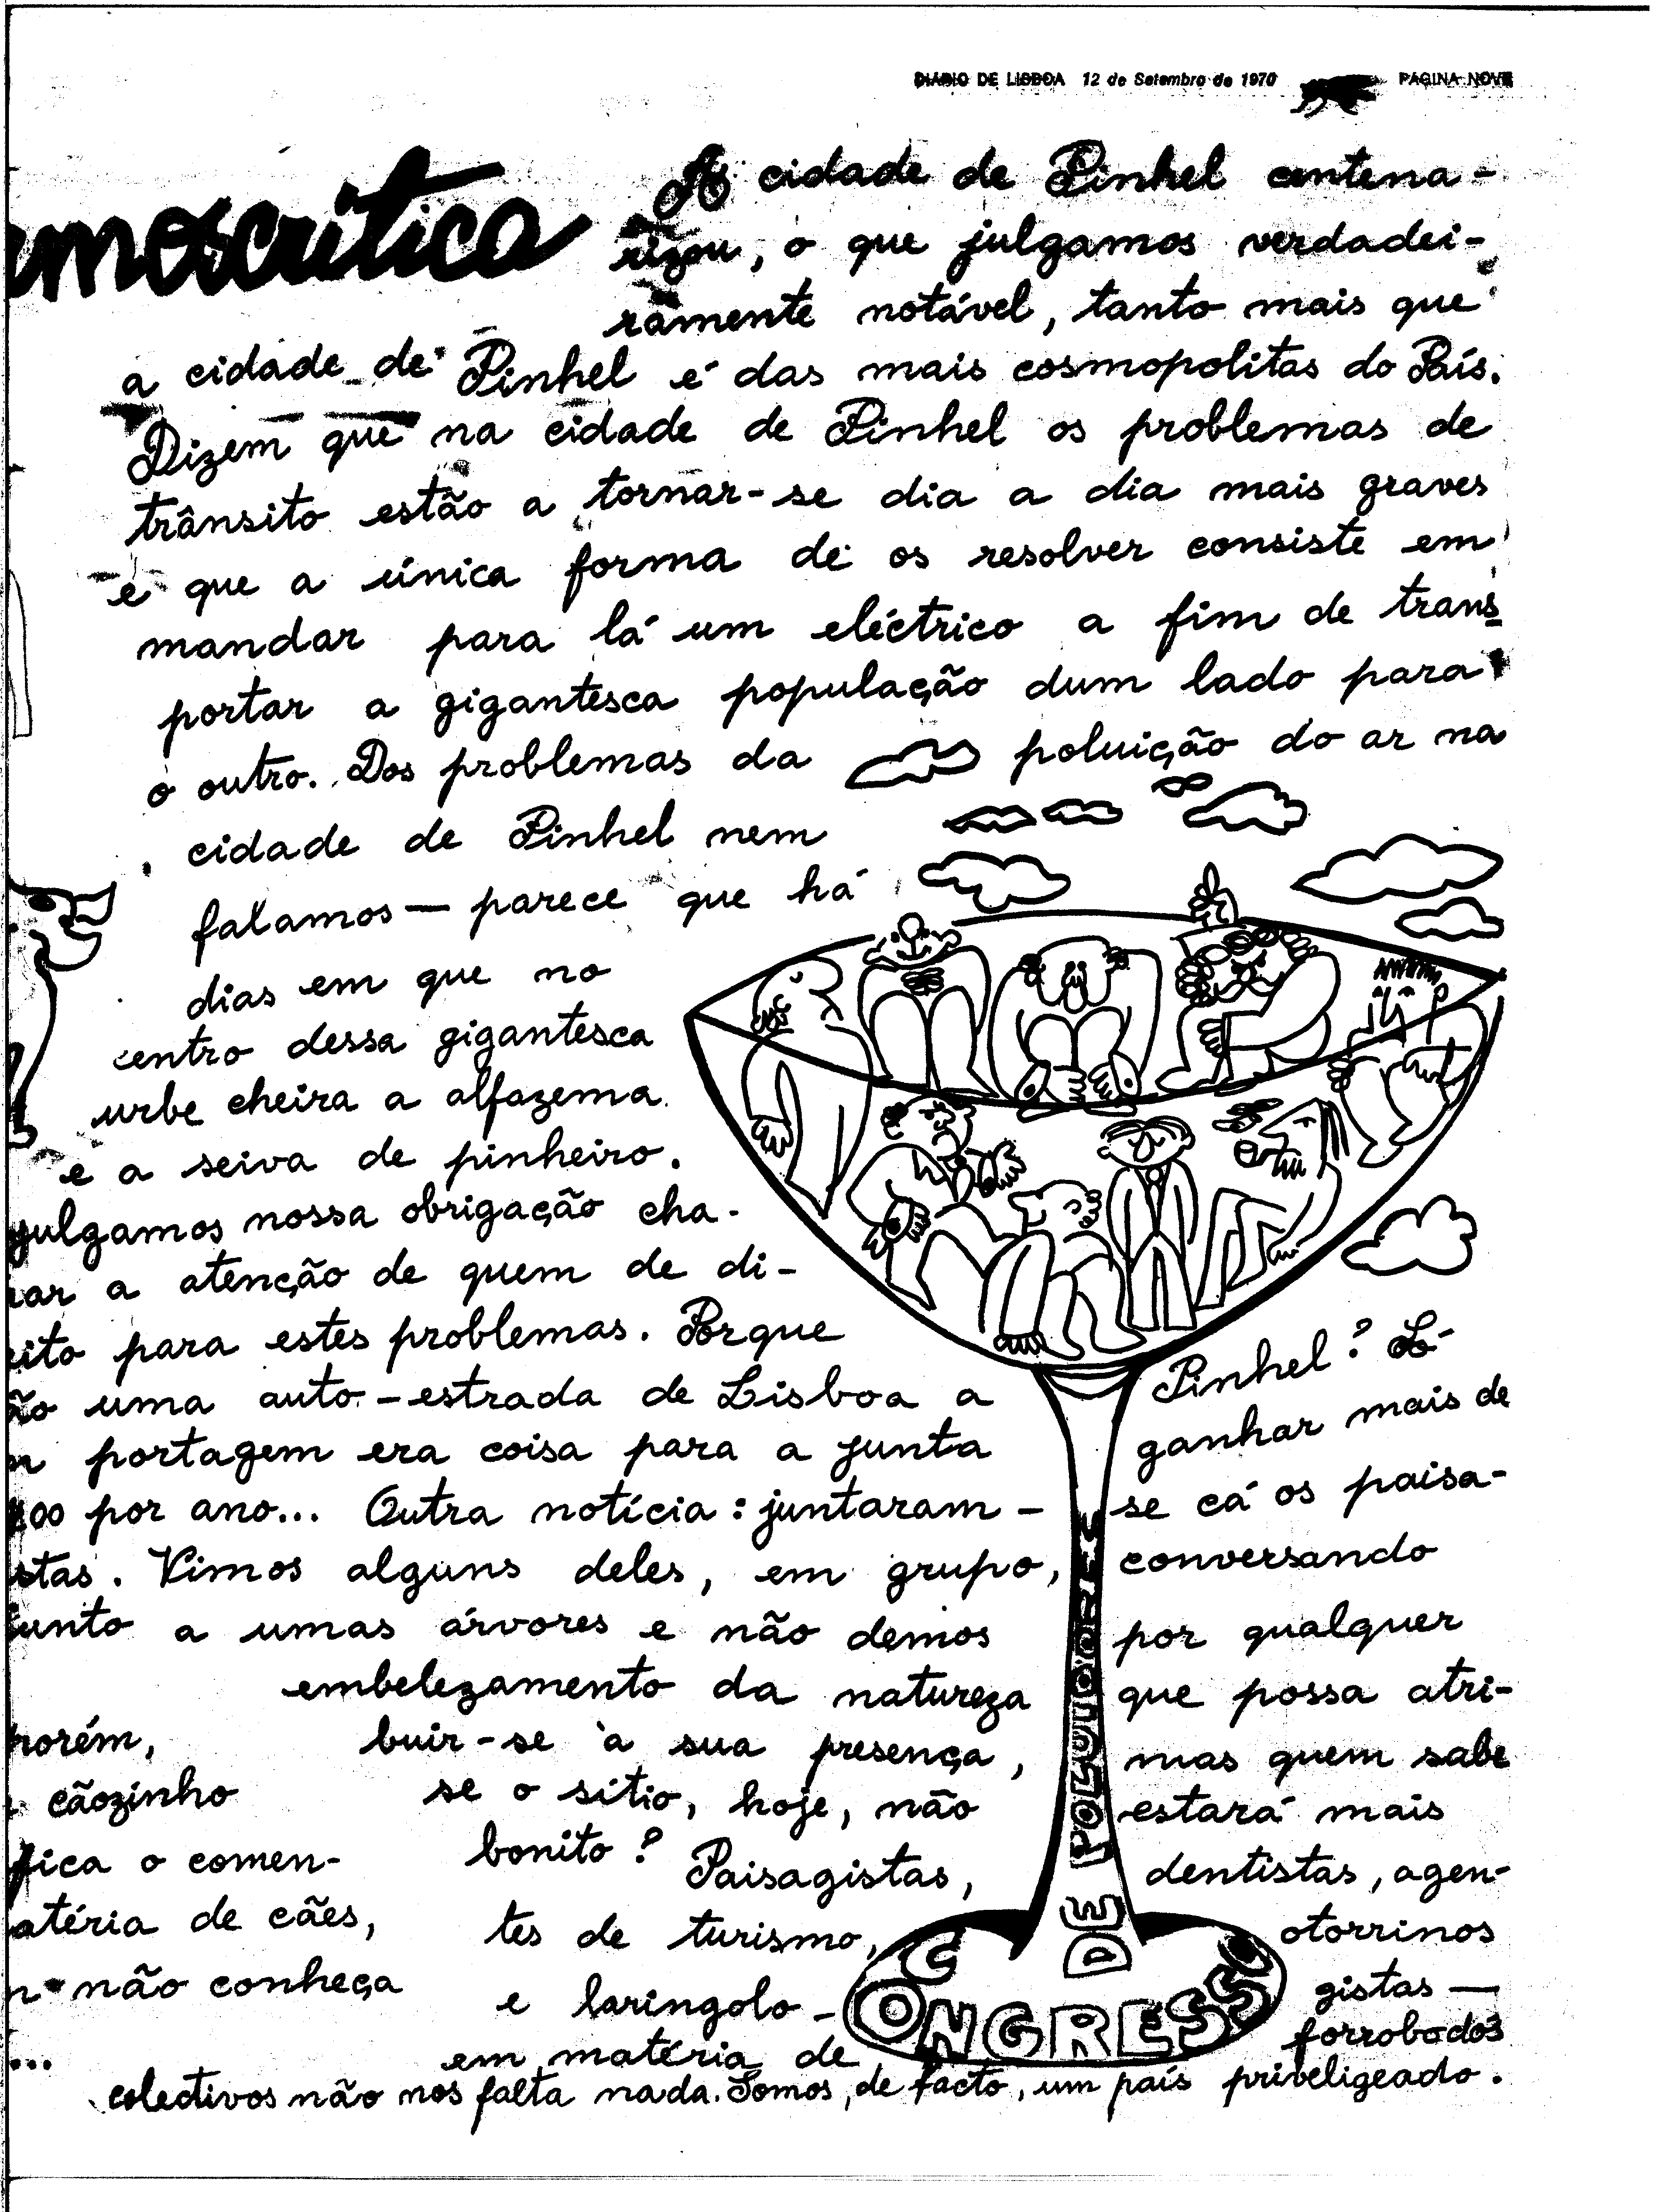 DIÁRIO DE LISBOA 12 de Setembro de 1970 PÁGINA NOVE
moscritica
A cidade de Pinhel centena-
rizou, o que julgamos verdadei-
ramente notável, tanto mais que
a cidade de Pinhel é das mais cosmopolitas do País.
Dizem que na cidade de Pinhel os problemas de
trânsito estão a tornar-se dia a dia mais graves
e que a única forma de os resolver consiste em
mandar para lá um eléctrico a fim de trans
portar a gigantesca população dum lado para
o outro. Dos problemas da poluição do ar na
cidade de Pinhel nem
falamos — parece que há
dias em que no
centro dessa gigantesca
urbe cheira a alfazema
e a seiva de pinheiro.
julgamos nossa obrigação cha-
mar a atenção de quem de di-
eito para estes problemas. Porque
ão uma auto-estrada de Lisboa a Pinhel? Só
portagem era coisa para a junta ganhar mais de
00 por ano... Outra notícia: juntaram-se cá os paisa-
stas. Vimos alguns deles, em grupo, conversando
junto a umas árvores e não demos por qualquer
embelezamento da natureza que possa atri-
buir-se à sua presença, mas quem sabe
se o sítio, hoje, não estará mais
bonito? Paisagistas, dentistas, agen-
tes de turismo, otorrinos
e laringolo-gistas —
em matéria de forrobodos
colectivos não nos falta nada. Somos, de facto, um país priveligeado.
porém,
cãozinho
fica o comen-
atéria de cães,
não conheça
...
CONGRESSO
DE
POLUIDORES